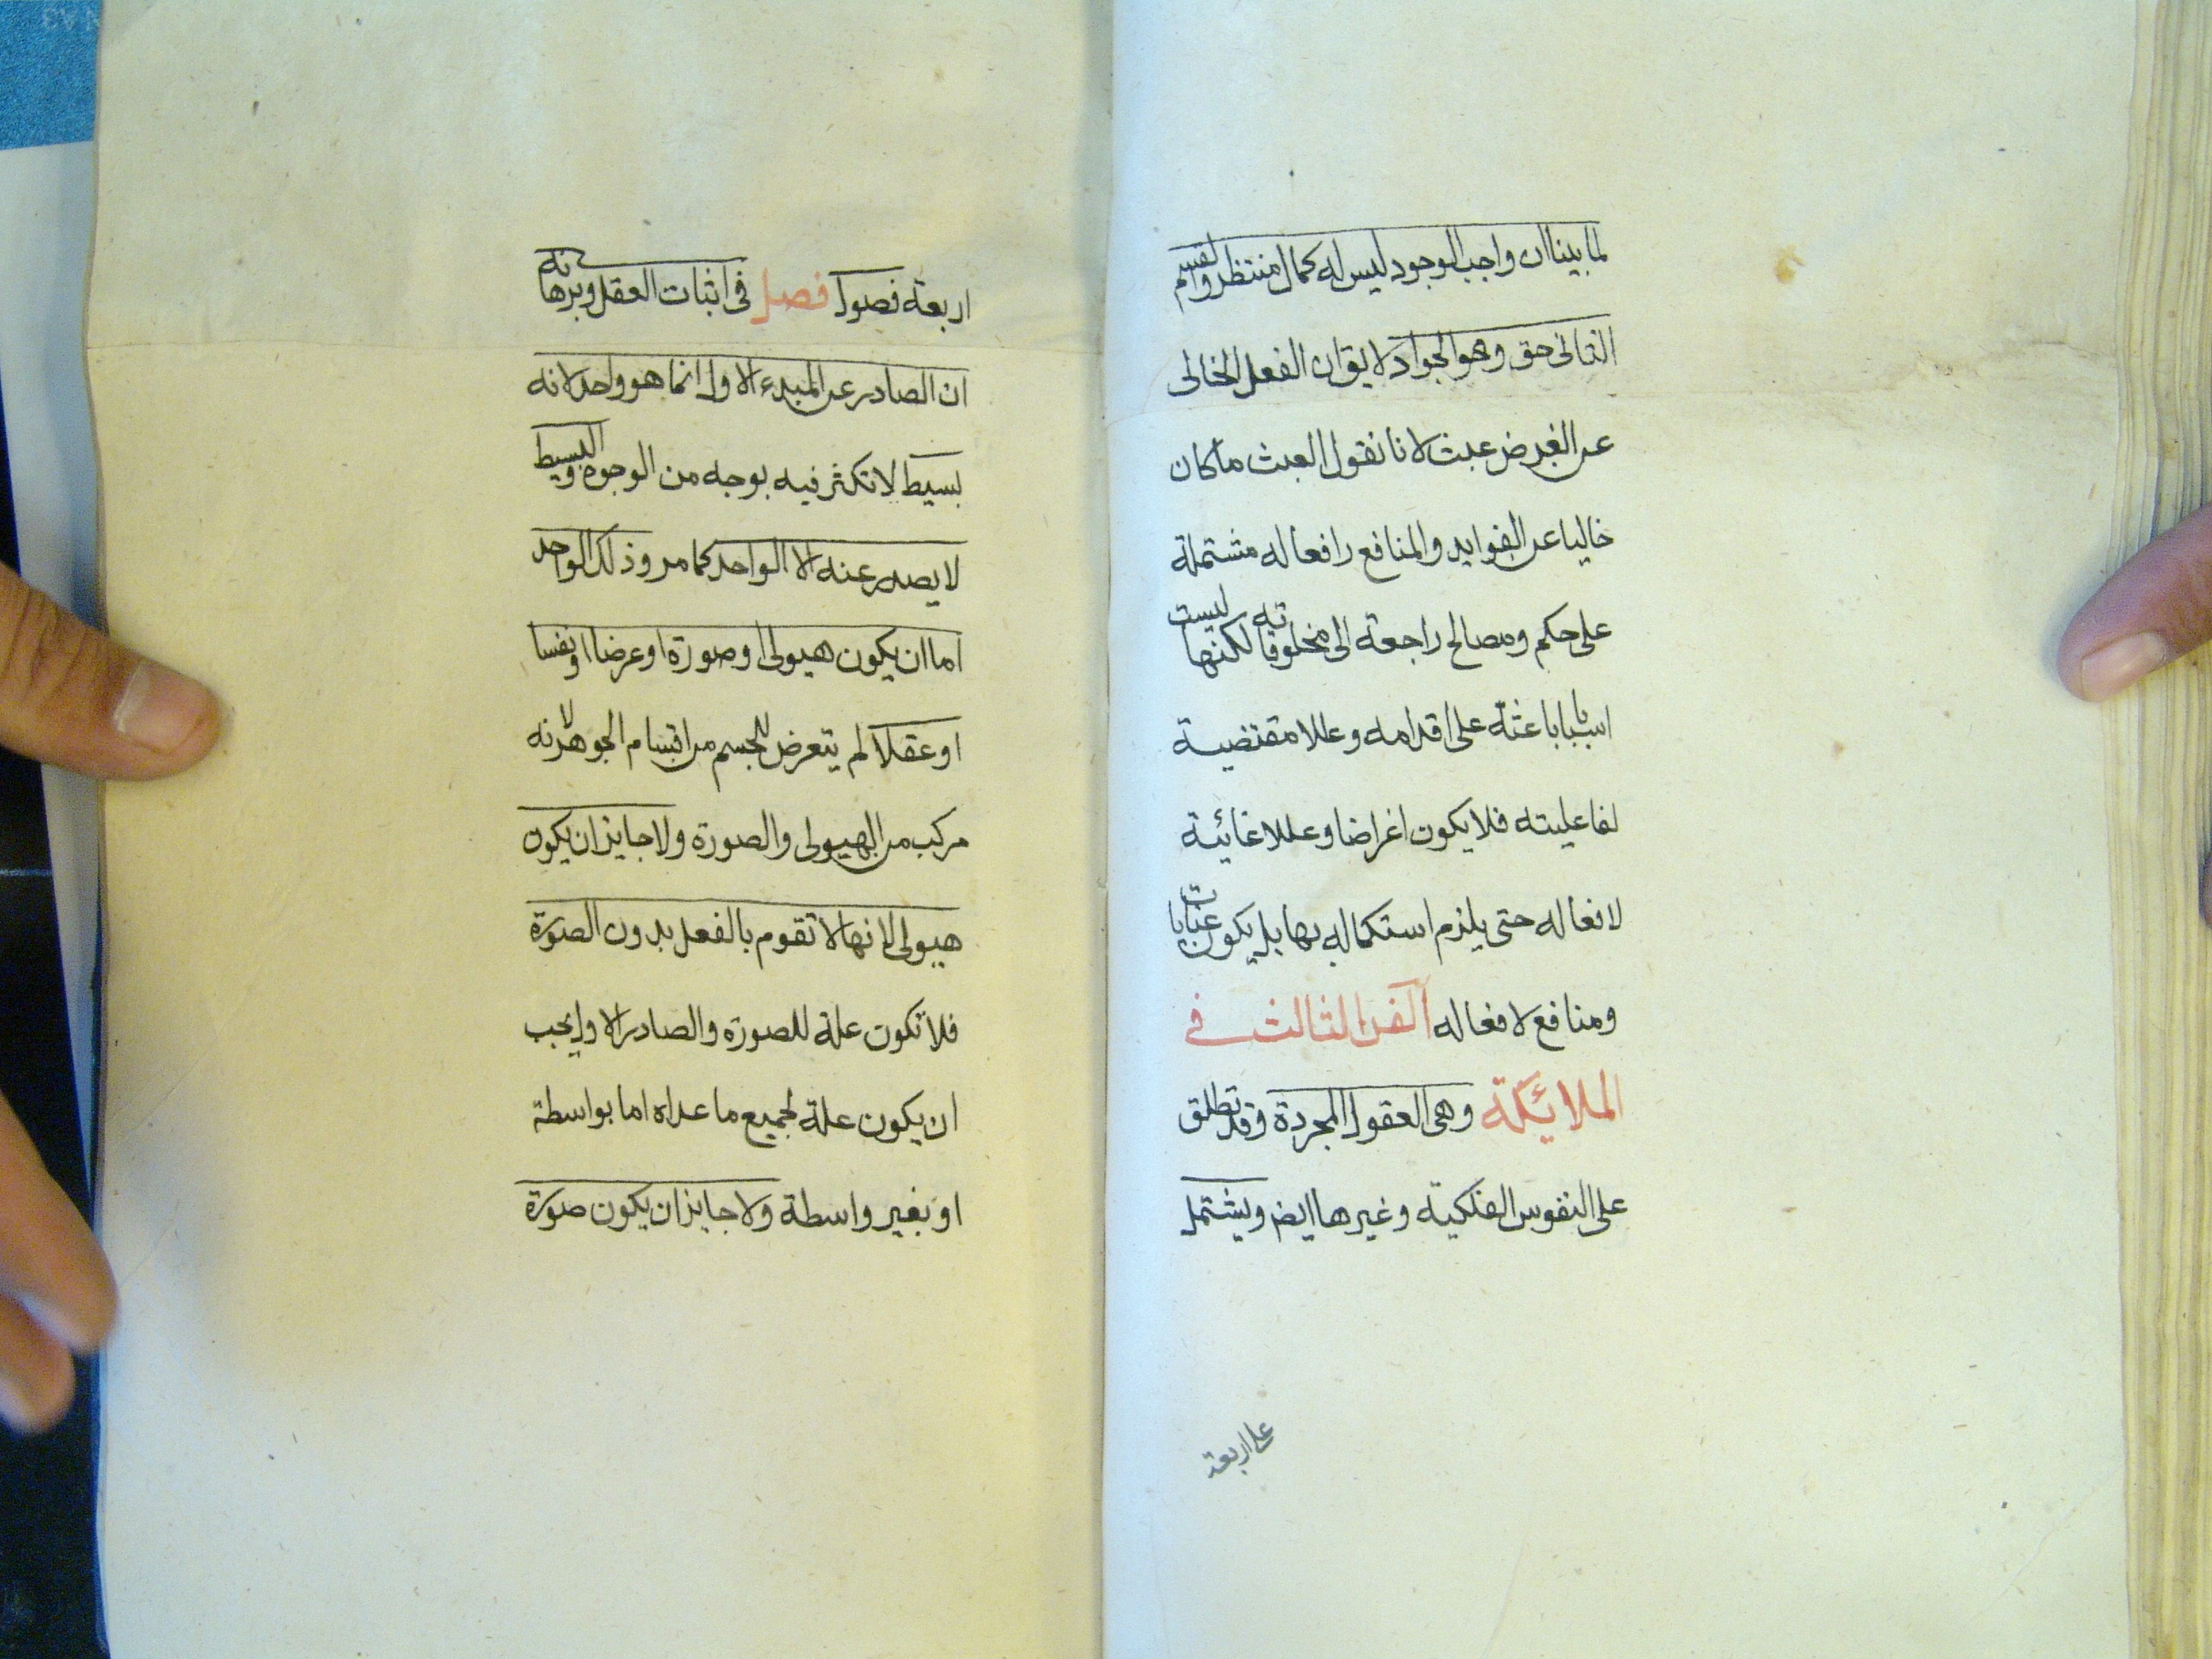 لما بينا ان واجب الوجود ليس له كمال منتظر والقسم
الثانى حق وهو الجواد لا يق ان الفعل الخالى
عن الغرض عبث لانا نقول العبث ما كان
خاليا عن الفوايد والمنافع وافعاله مشتملة
على حكم ومصالح راجعة الى مخلوقاته لكنها ليست
اسبابا باعثة على اقدامه وعللا مقتضية
لفاعليته فلا يكون اغراضا وعللا غائية
لافعاله حتى يلزم استكماله بها بل يكون غايات
ومنافع لافعاله الفن الثالث فى
الملائكة وهى العقول المجردة وقد تطلق
على النفوس الفلكية وغيرها ايض ويشتمل
على اربعة
اربعة فصول فصل فى اثبات العقل وبرهانه
ان الصادر عن المبدء الاول انما هو واحد لانه
بسيط لا تكثر فيه بوجه من الوجوه والبسيط
لا يصدر عنه الا الواحد كما مر وذلك الواحد
اما ان يكون هيولى او صورة او عرضا او نفسا
او عقلا لم يتعرض للجسم من اقسام الجوهر لانه
مركب من الهيولى والصورة ولا جايز ان يكون
هيولى لانها لا تقوم بالفعل بدون الصورة
فلا تكون علة للصورة والصادر الاول يجب
ان يكون علة لجميع ما عداه اما بواسطة
او بغير واسطة ولا جايز ان يكون صورة